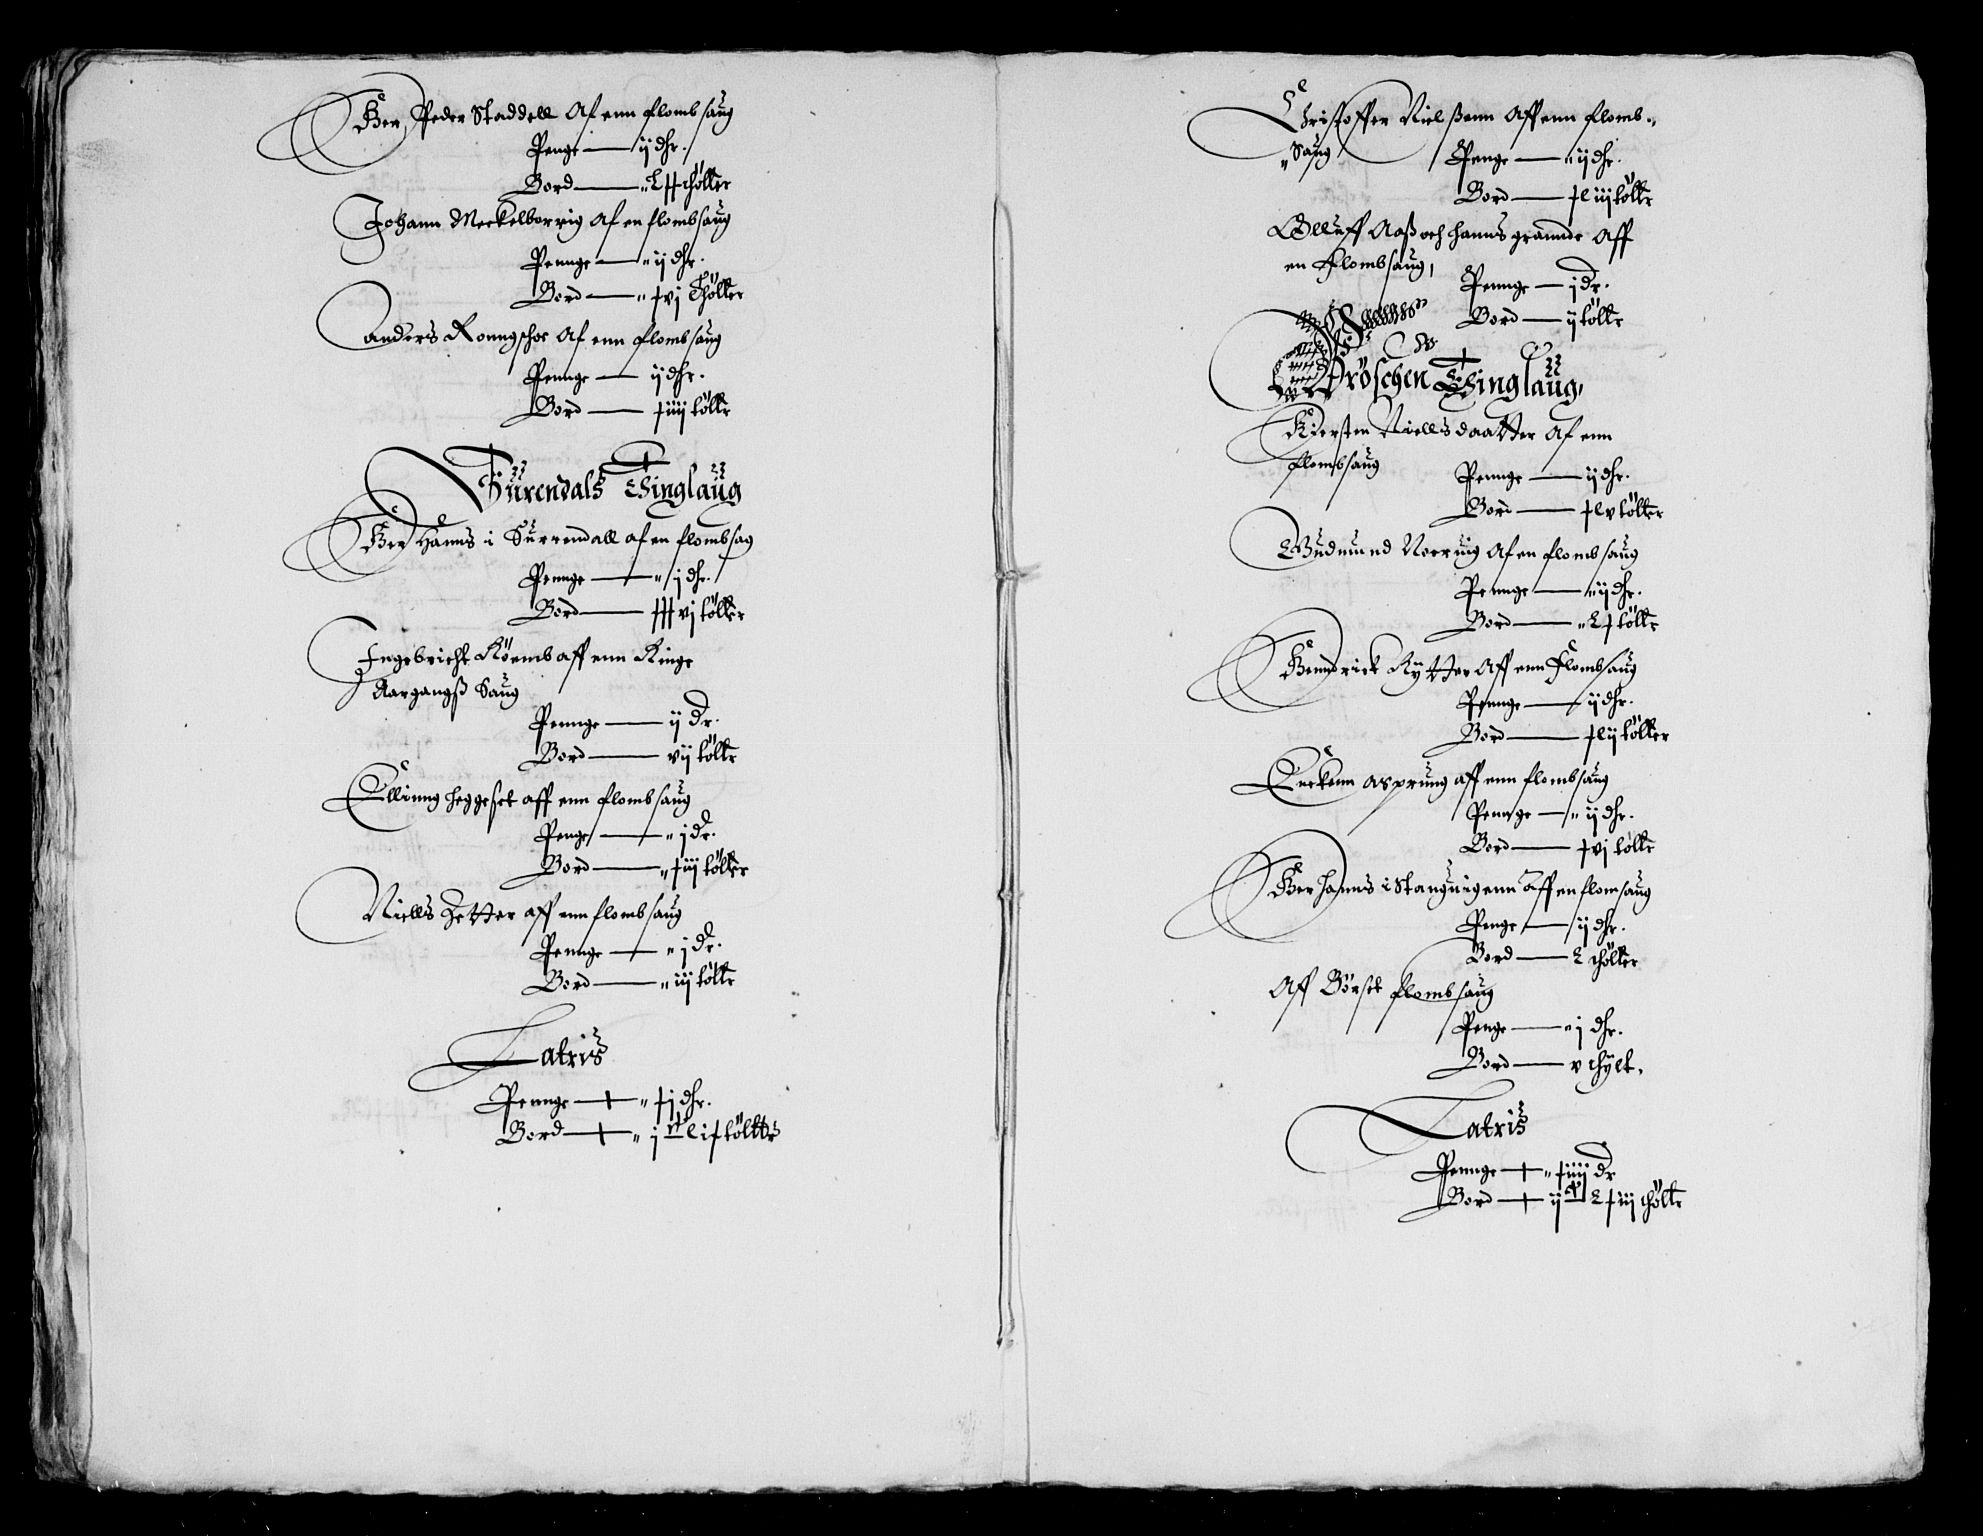 Her Peder Staddell Af enn flombsaug
Penge — ij dlr.
Bord — L ++ thölter
Johann Meckelborrig Af en flombsaug
Pennge — ij dlr.
Bord — +vj Thölter
anders Ronngschoe Af enn flombsaug
Pennge — ij dlr.
Bord — +iiij töltr
Surendals Tinglaug
Her Hanns i Surrendall af en flombsag
Pennge — j dlr.
Bord — +++ vj tölter
Ingebricht Röemb aff enn Ringe
Aargangß Saug
Pennge — ij dr.
Bord — vij töltr
Ellinng heggeset aff enn flombsaug
Penge — j dr.
Bord — +iij tölter
Niells Zetter aff enn flombsaug
Pennge — j dr.
Bord — iij töltr
Latris
Pennge — +j dlr.
Bord — j c Li+ tölttr
Christoffer Nielßenn Aff enn flomb-
Saug
Penge — ij dlr.
Bord — +L iij töltr
Olluff Aaß och hanns grannde Aff
en flombsaug,
Pennge — j dr.
Bord — ij töltr
Tinglaug,
Kiersten Niellsdaatter Af enn
flombsaug
Pennge — ij dlr.
Bord — +Lv tölter
Gudmund Noerviig Af en flombsaug
Pennge — ij dlr.
Bord — L+ töltr
Henndrick Rytter Aff enn Flombsaug
Pennge — ij dlr.
Bord — +L ij tölter
Enckenn asprung aff enn flombsaug
Pennge — ij dlr.
Bord — +vj töltr
Her Hanns i Stanguigenn Aff en flomsaug
Penge — ij dlr.
Bord — L thölter
Aff Börset flombsaug
Penge — j dlr.
Bord — v thylt.
Latris
Pennge — +iiij dr
Bord — ij c L+iij thöltr